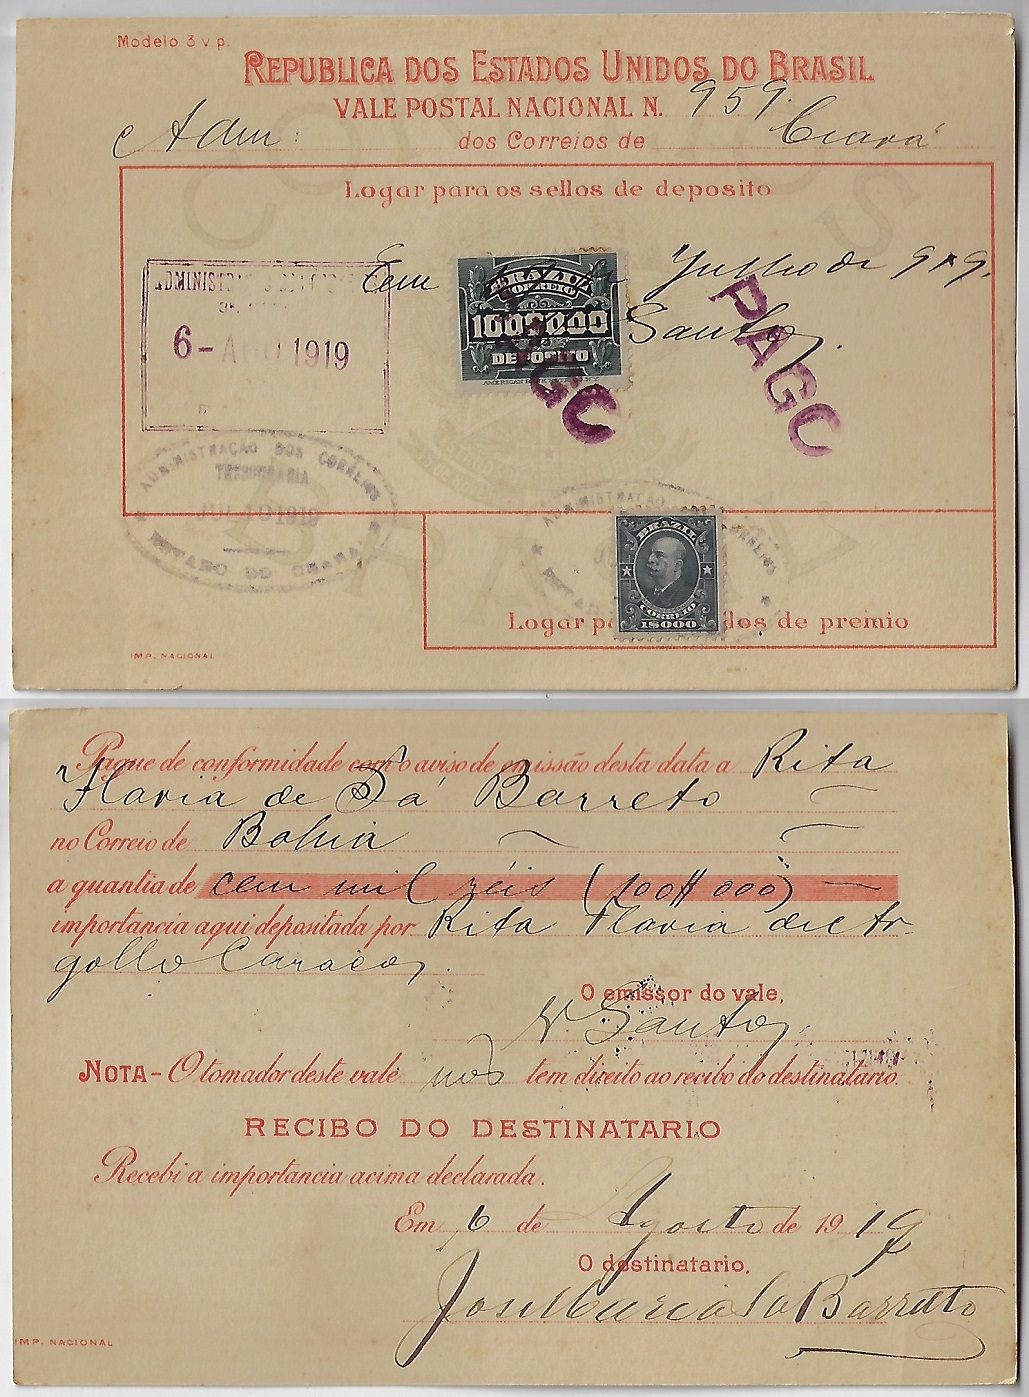 Modelo 3 v p.
REPUBLICA DOS ESTADOS UNIDOS DO BRASIL
VALE POSTAL NACIONAL N. 959.
Adm: dos Correios de Ceará
Logar para os sellos de deposito
Em Julho de 919.
Santos
BRAZIL
CORREIO
100$000
DEPOSITO
AMERICAN BANK NOTE CO. N.Y.
PAGO
PAGO
6 - AGO 1919
ADMINISTRAÇÃO DOS CORREIOS
THESOURARIA
JUL 10 1919
ESTADO DO CEARA
ADMINISTRAÇÃO CORREIOS
BRAZIL
CORREIO
1$000
Logar pa los de premio
IMP. NACIONAL
Pague de conformidade com o aviso de emissão desta data a Rita
Flavia de Sá Barreto
no Correio de Bahia
a quantia de cem mil réis (100$000)
importancia aqui depositada por Rita Flavia
O emissor do vale,
Santos
NOTA - O tomador deste vale não tem direito ao recibo do destinatario.
RECIBO DO DESTINATARIO
Recebi a importancia acima declarada.
Em 6 de Agosto de 1919
O destinatario,
José Maria Sá Barretto
IMP. NACIONAL